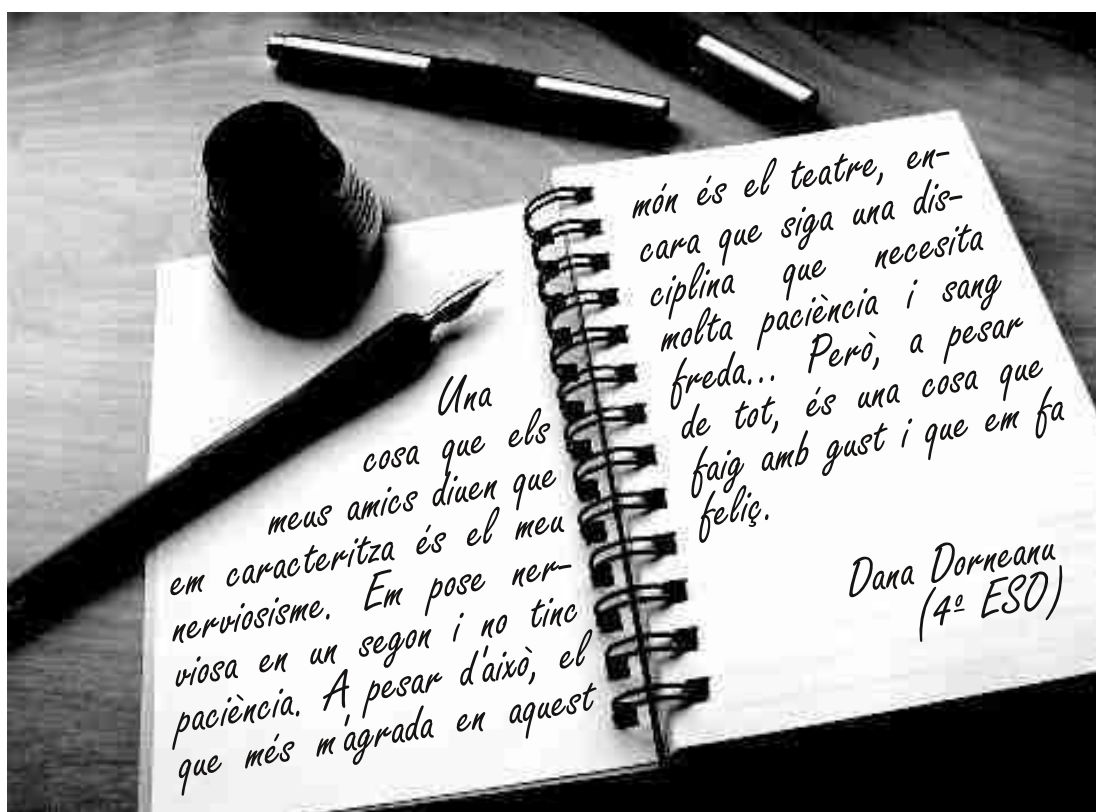 Una
cosa que els
meus amics diuen que
em caracteritza és el meu
nerviosisme. Em pose ner-
viosa en un segon i no tinc
paciència. A pesar d'això, el
que més m'agrada en aquest
món és el teatre, en-
cara que siga una dis-
ciplina que necesita
molta paciència i sang
freda... Però, a pesar
de tot, és una cosa que
faig amb gust i que em fa
feliç.
Dana Dorneanu
(4º ESO)